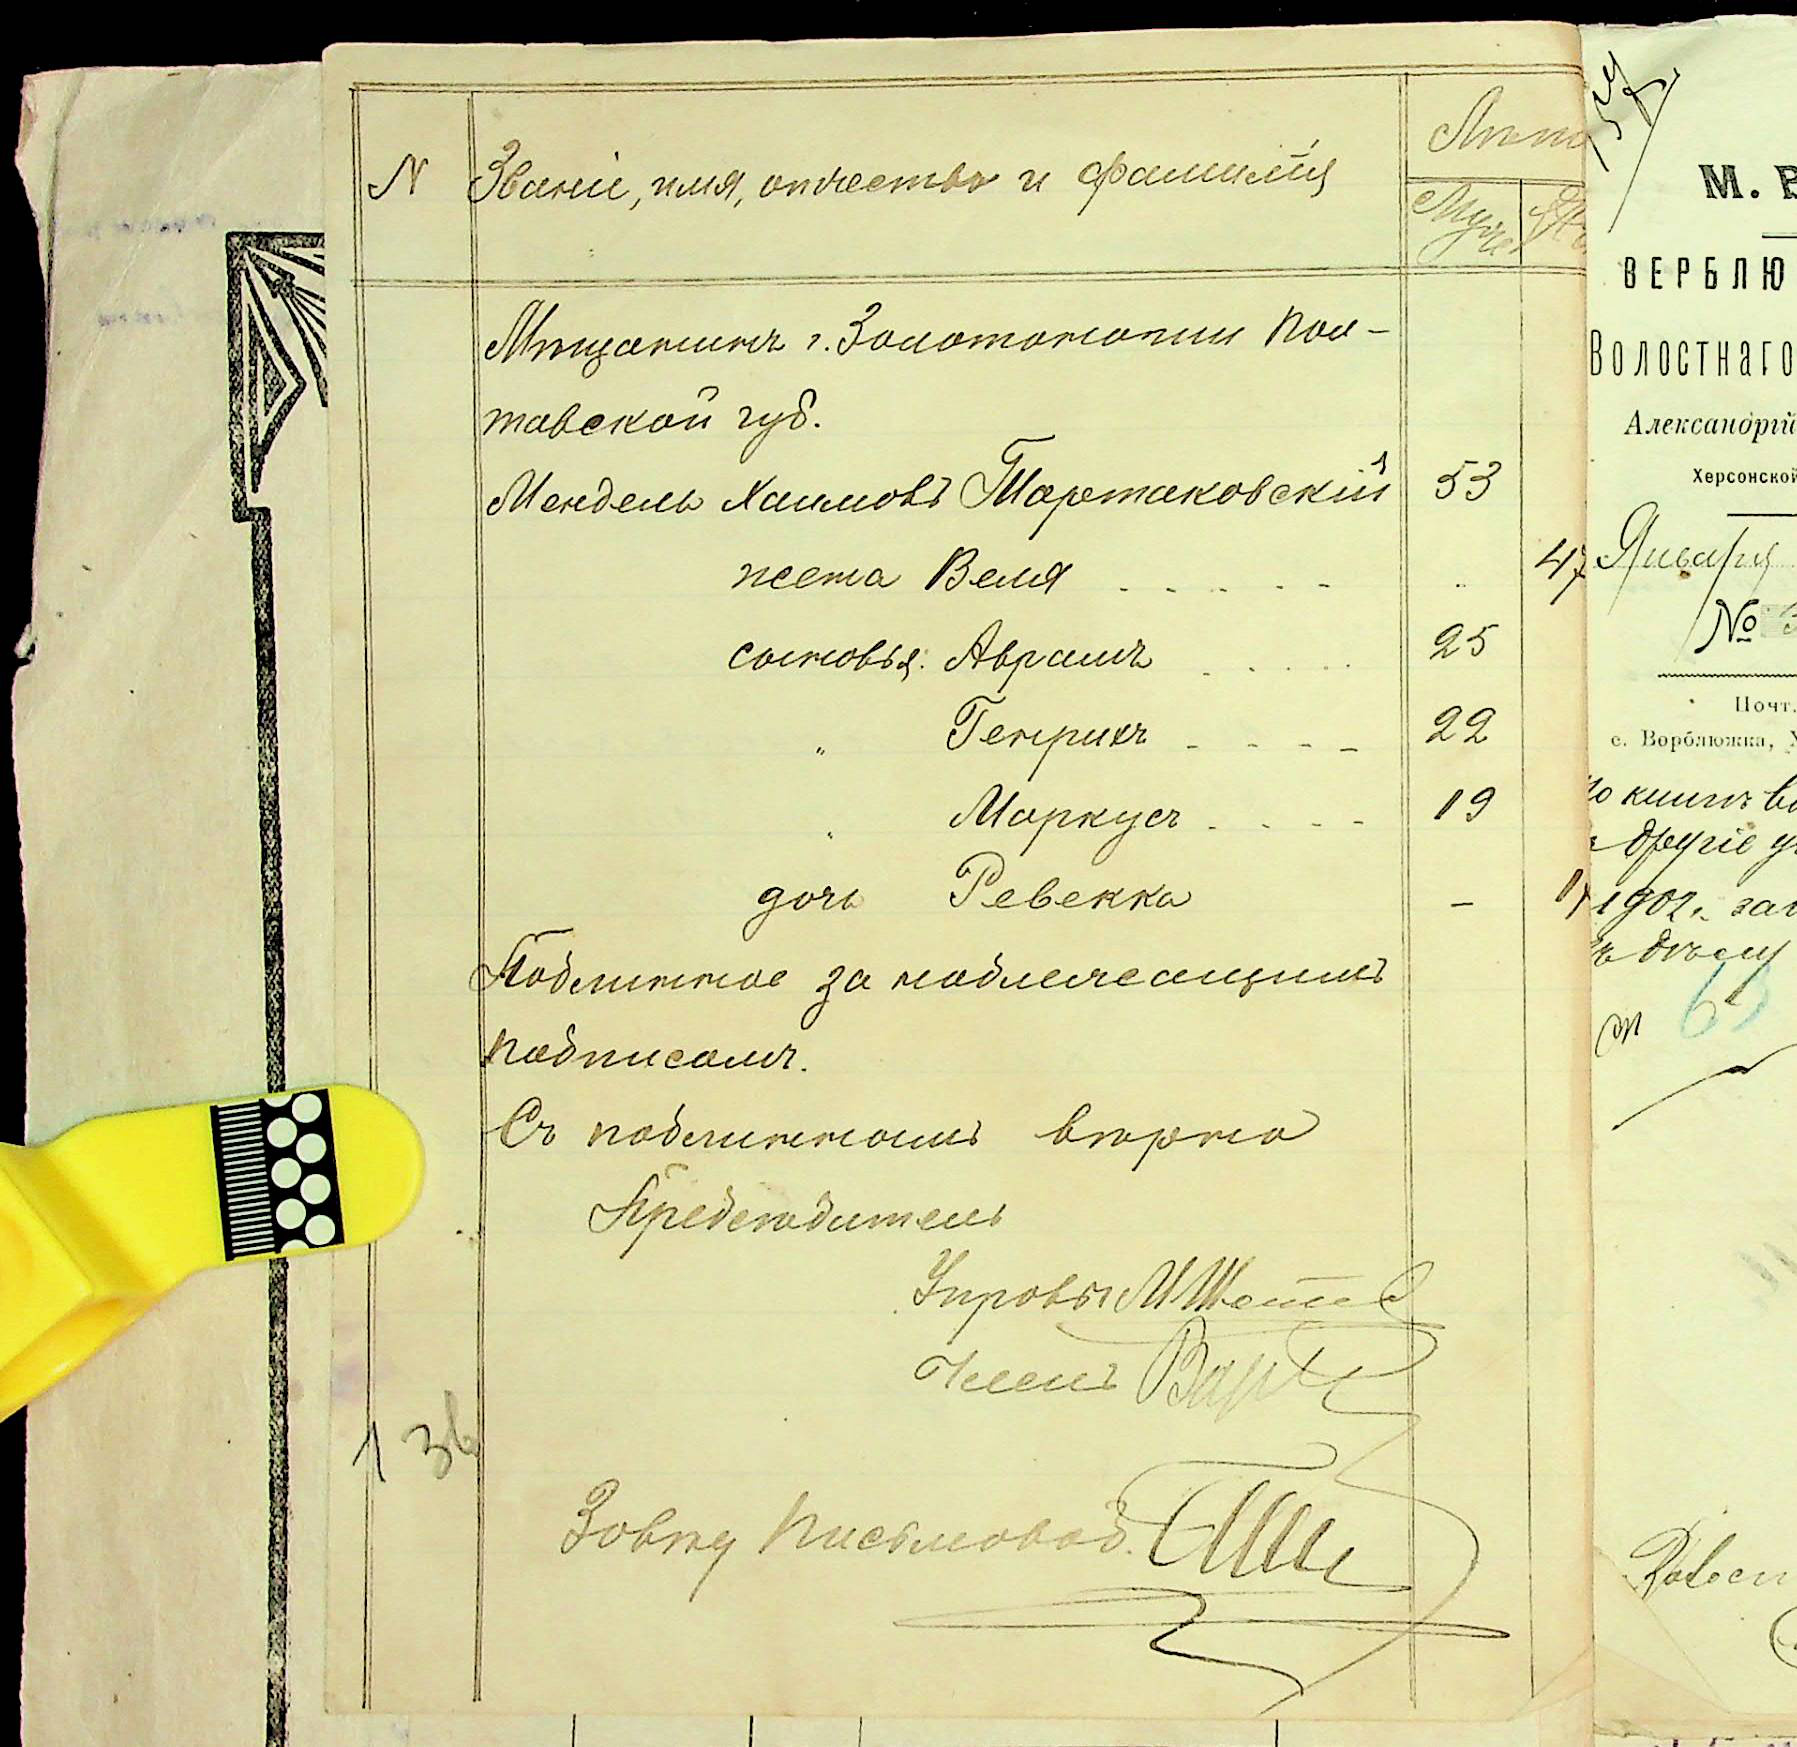 N
Званіе, имя, отчество и фамилія
Лѣта
Мужс
Мѣщанинъ г. Золотоноши Пол-
тавской губ.
Мендель Хаимовъ Тартаковскій 53
жена Веля 47
сыновья: Аврамъ 25
" Генрихъ 22
" Маркусъ 19
дочь Ревекка -
Подлинное за надлежащимъ
подписомъ.
Съ подлиннымъ вѣрно
Предсѣдатель
Управы
Членъ
Завѣд Письмовод.
М. В
ВЕРБЛЮ
Волостнаго
Александрій
Херсонской
Января
№ 3
Почт.
с. Верблюжка, Х
по книгѣ
другіе
дѣлу
63